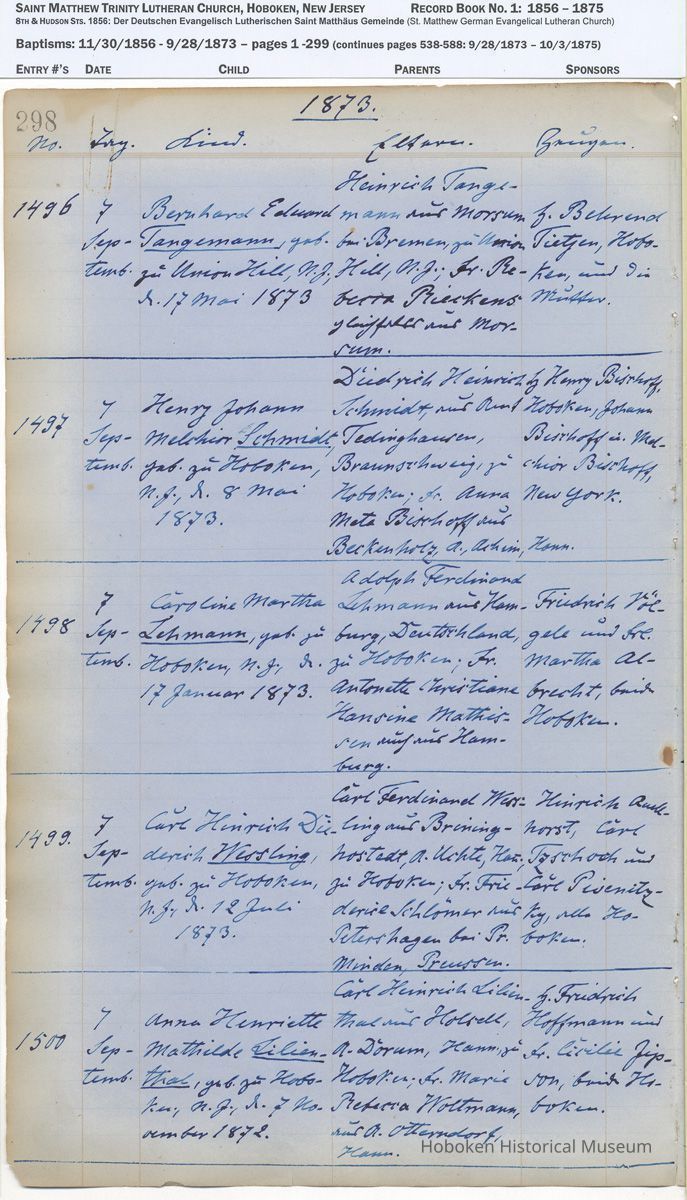 SAINT MATTHEW TRINITY LUTHERAN CHURCH, HOBOKEN, NEW JERSEY RECORD BOOK NO. 1: 1856 – 1875
8TH & HUDSON STS. 1856: Der Deutschen Evangelisch Lutherischen Saint Matthäus Gemeinde (St. Matthew German Evangelical Lutheran Church)
Baptisms: 11/30/1856 - 9/28/1873 – pages 1 -299 (continues pages 538-588: 9/28/1873 – 10/3/1875)
ENTRY #'S DATE CHILD PARENTS SPONSORS
298
1873.
No. Tag. Kind. Eltern. Zeugen.
1496
7
Sep-
temb.
Bernhard Eduard
Tangemann, geb.
zu Union Hill, N.J.,
d. 17 Mai 1873
Heinrich Tange-
mann aus Morsum
bei Bremen, zu Union
Hill, N.J.; Fr. Re-
becca Rieckens
gleichfalls aus Mor-
sum.
H. Behrend
Tietjen, Hobo-
ken, und die
Mutter.
1497
7
Sep-
temb.
Henry Johann
Melchior Schmidt,
geb. zu Hoboken,
N.J., d. 8 Mai
1873.
Diedrich Heinrich
Schmidt, aus Amt
Tedinghausen,
Braunschweig, zu
Hoboken; Fr. Anna
Meta Bischoff aus
Beckenholz, A. Achim, Hann.
H Henry Bischoff,
Hoboken, Johann
Bischoff u. Mel-
chior Bischoff,
New York.
1498
7
Sep-
temb.
Caroline Martha
Lehmann, geb. zu
Hoboken, N.J., d.
17 Januar 1873.
Adolph Ferdinand
Lehmann aus Ham-
burg, Deutschland,
zu Hoboken; Fr.
Antonette Christiane
Hansine Mathis-
sen auch aus Ham-
burg.
Friedrich Völ-
gele und Frl.
Martha Al-
brecht, beide
Hoboken.
1499.
7
Sep-
temb.
Carl Hinrich Die-
derich Wessling,
geb. zu Hoboken,
N.J., d. 12 Juli
1873.
Carl Ferdinand Wess-
ling aus Brining-
hostedt, A. Uchte, Han.,
zu Hoboken; Fr. Frie-
derike Schlömer aus
Petershagen bei Pr.
Minden, Preussen.
Hinrich
horst, Carl
Tzschoch und
Carl Pivenitz-
ky, alle Ho-
boken.
1500
7
Sep-
temb.
Anna Henriette
Mathilde Lilien-
thal, geb. zu Hobo-
ken, N.J., d. 7 No-
vember 1872.
Carl Heinrich Lilien-
thal aus Holssel,
A. Dorum, Hann., zu
Hoboken; Fr. Marie
Rebecca Woltmann,
aus A. Otterndorf,
Hann.
H. Friedrich
Hoffmann und
Fr. Cicilie Jip-
son, beide Ho-
boken.
Hoboken Historical Museum